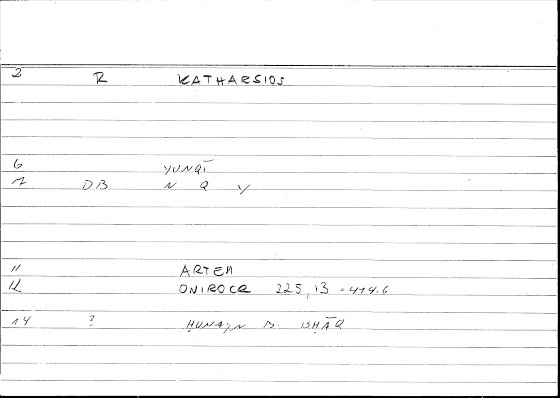 2 R KATHARSIOS
6 YUNQĪ
1 DB N Q Y
11 ARTEM
12 ONIROCR 225,13 = 414.6
14 ? ḤUNAYN B. ISḤĀQ